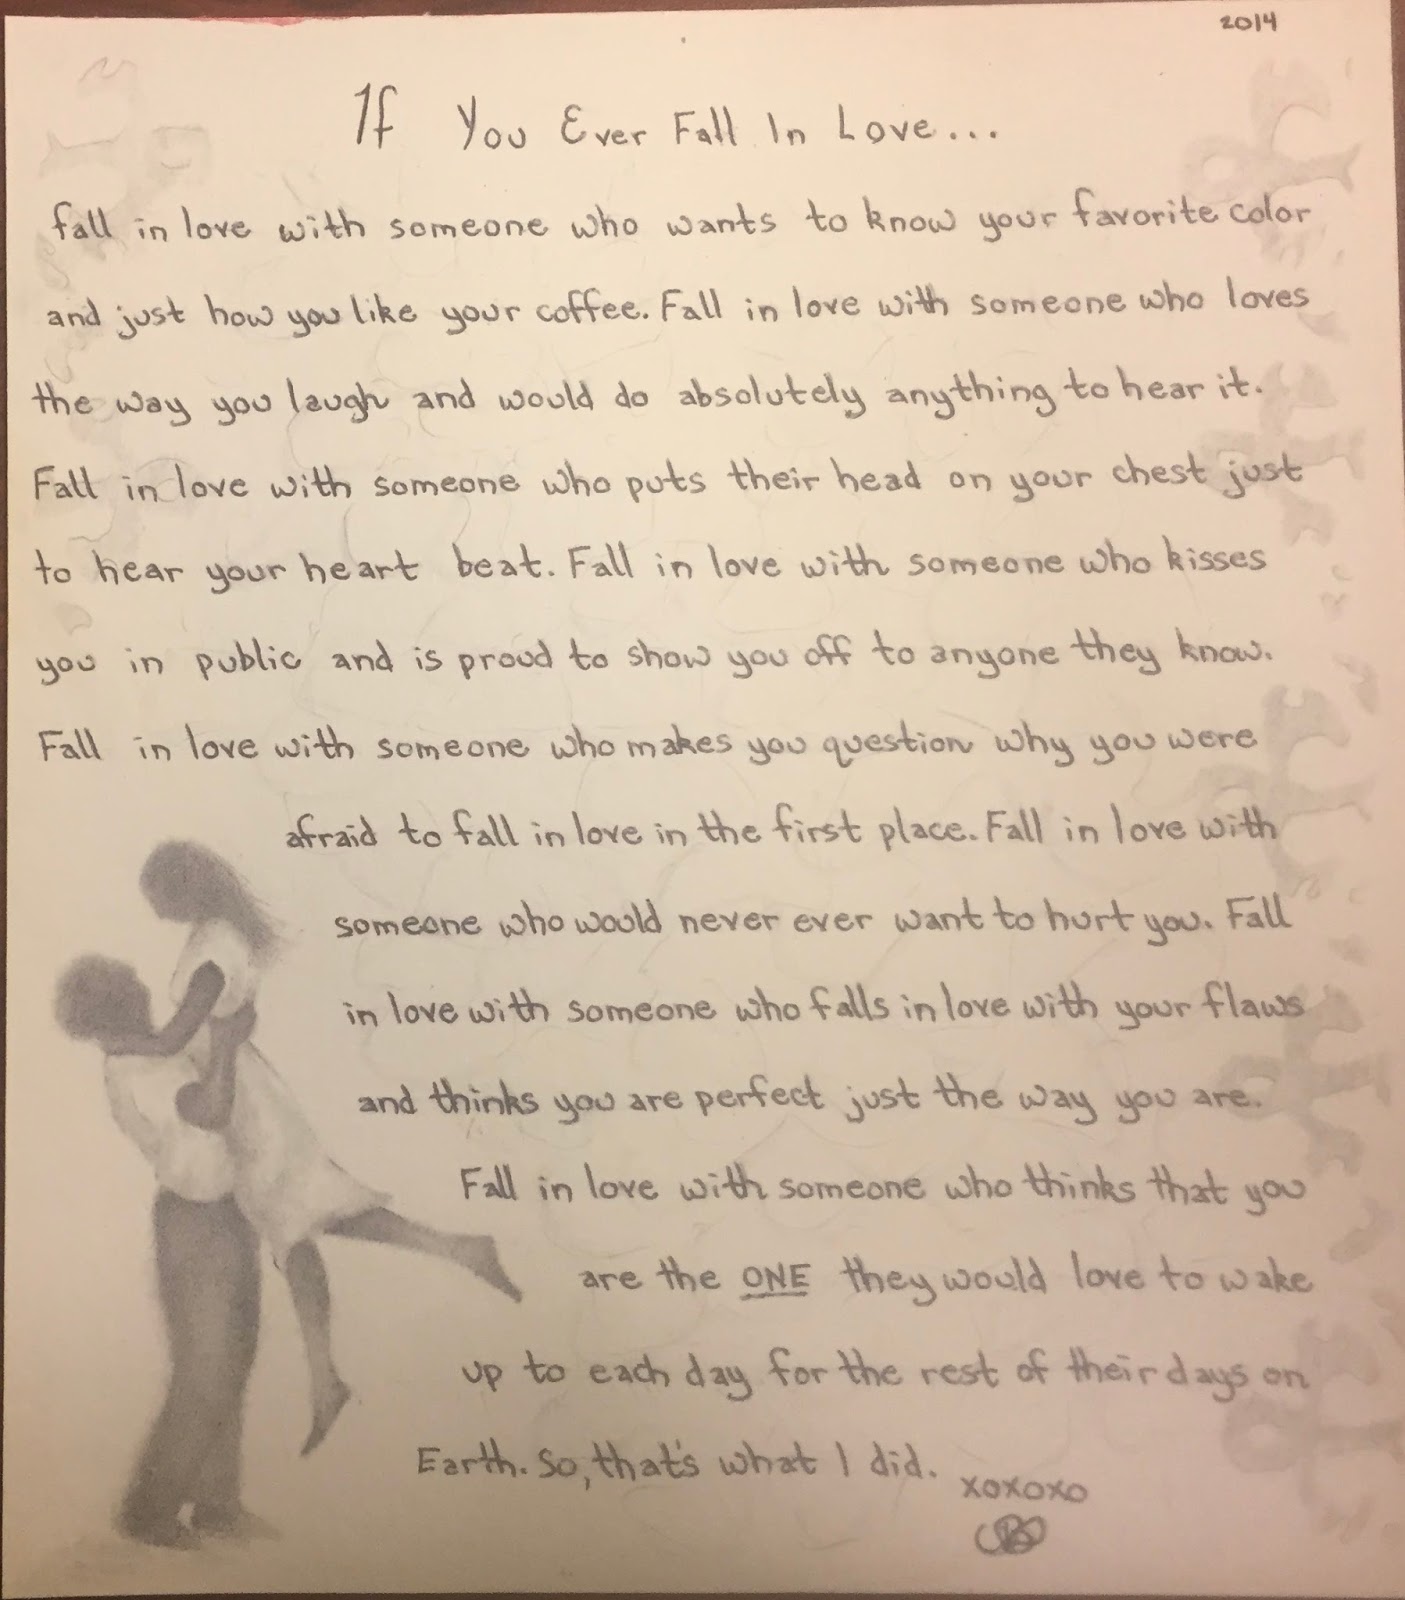 2014
If You Ever Fall In Love...
fall in love with someone who wants to know your favorite color
and just how you like your coffee. Fall in love with someone who loves
the way you laugh and would do absolutely anything to hear it.
Fall in love with someone who puts their head on your chest just
to hear your heart beat. Fall in love with someone who kisses
you in public and is proud to show you off to anyone they know.
Fall in love with someone who makes you question why you were
afraid to fall in love in the first place. Fall in love with
someone who would never ever want to hurt you. Fall
in love with someone who falls in love with your flaws
and thinks you are perfect just the way you are.
Fall in love with someone who thinks that you
are the ONE they would love to wake
up to each day for the rest of their days on
Earth. So, that's what I did.
xoxoxo